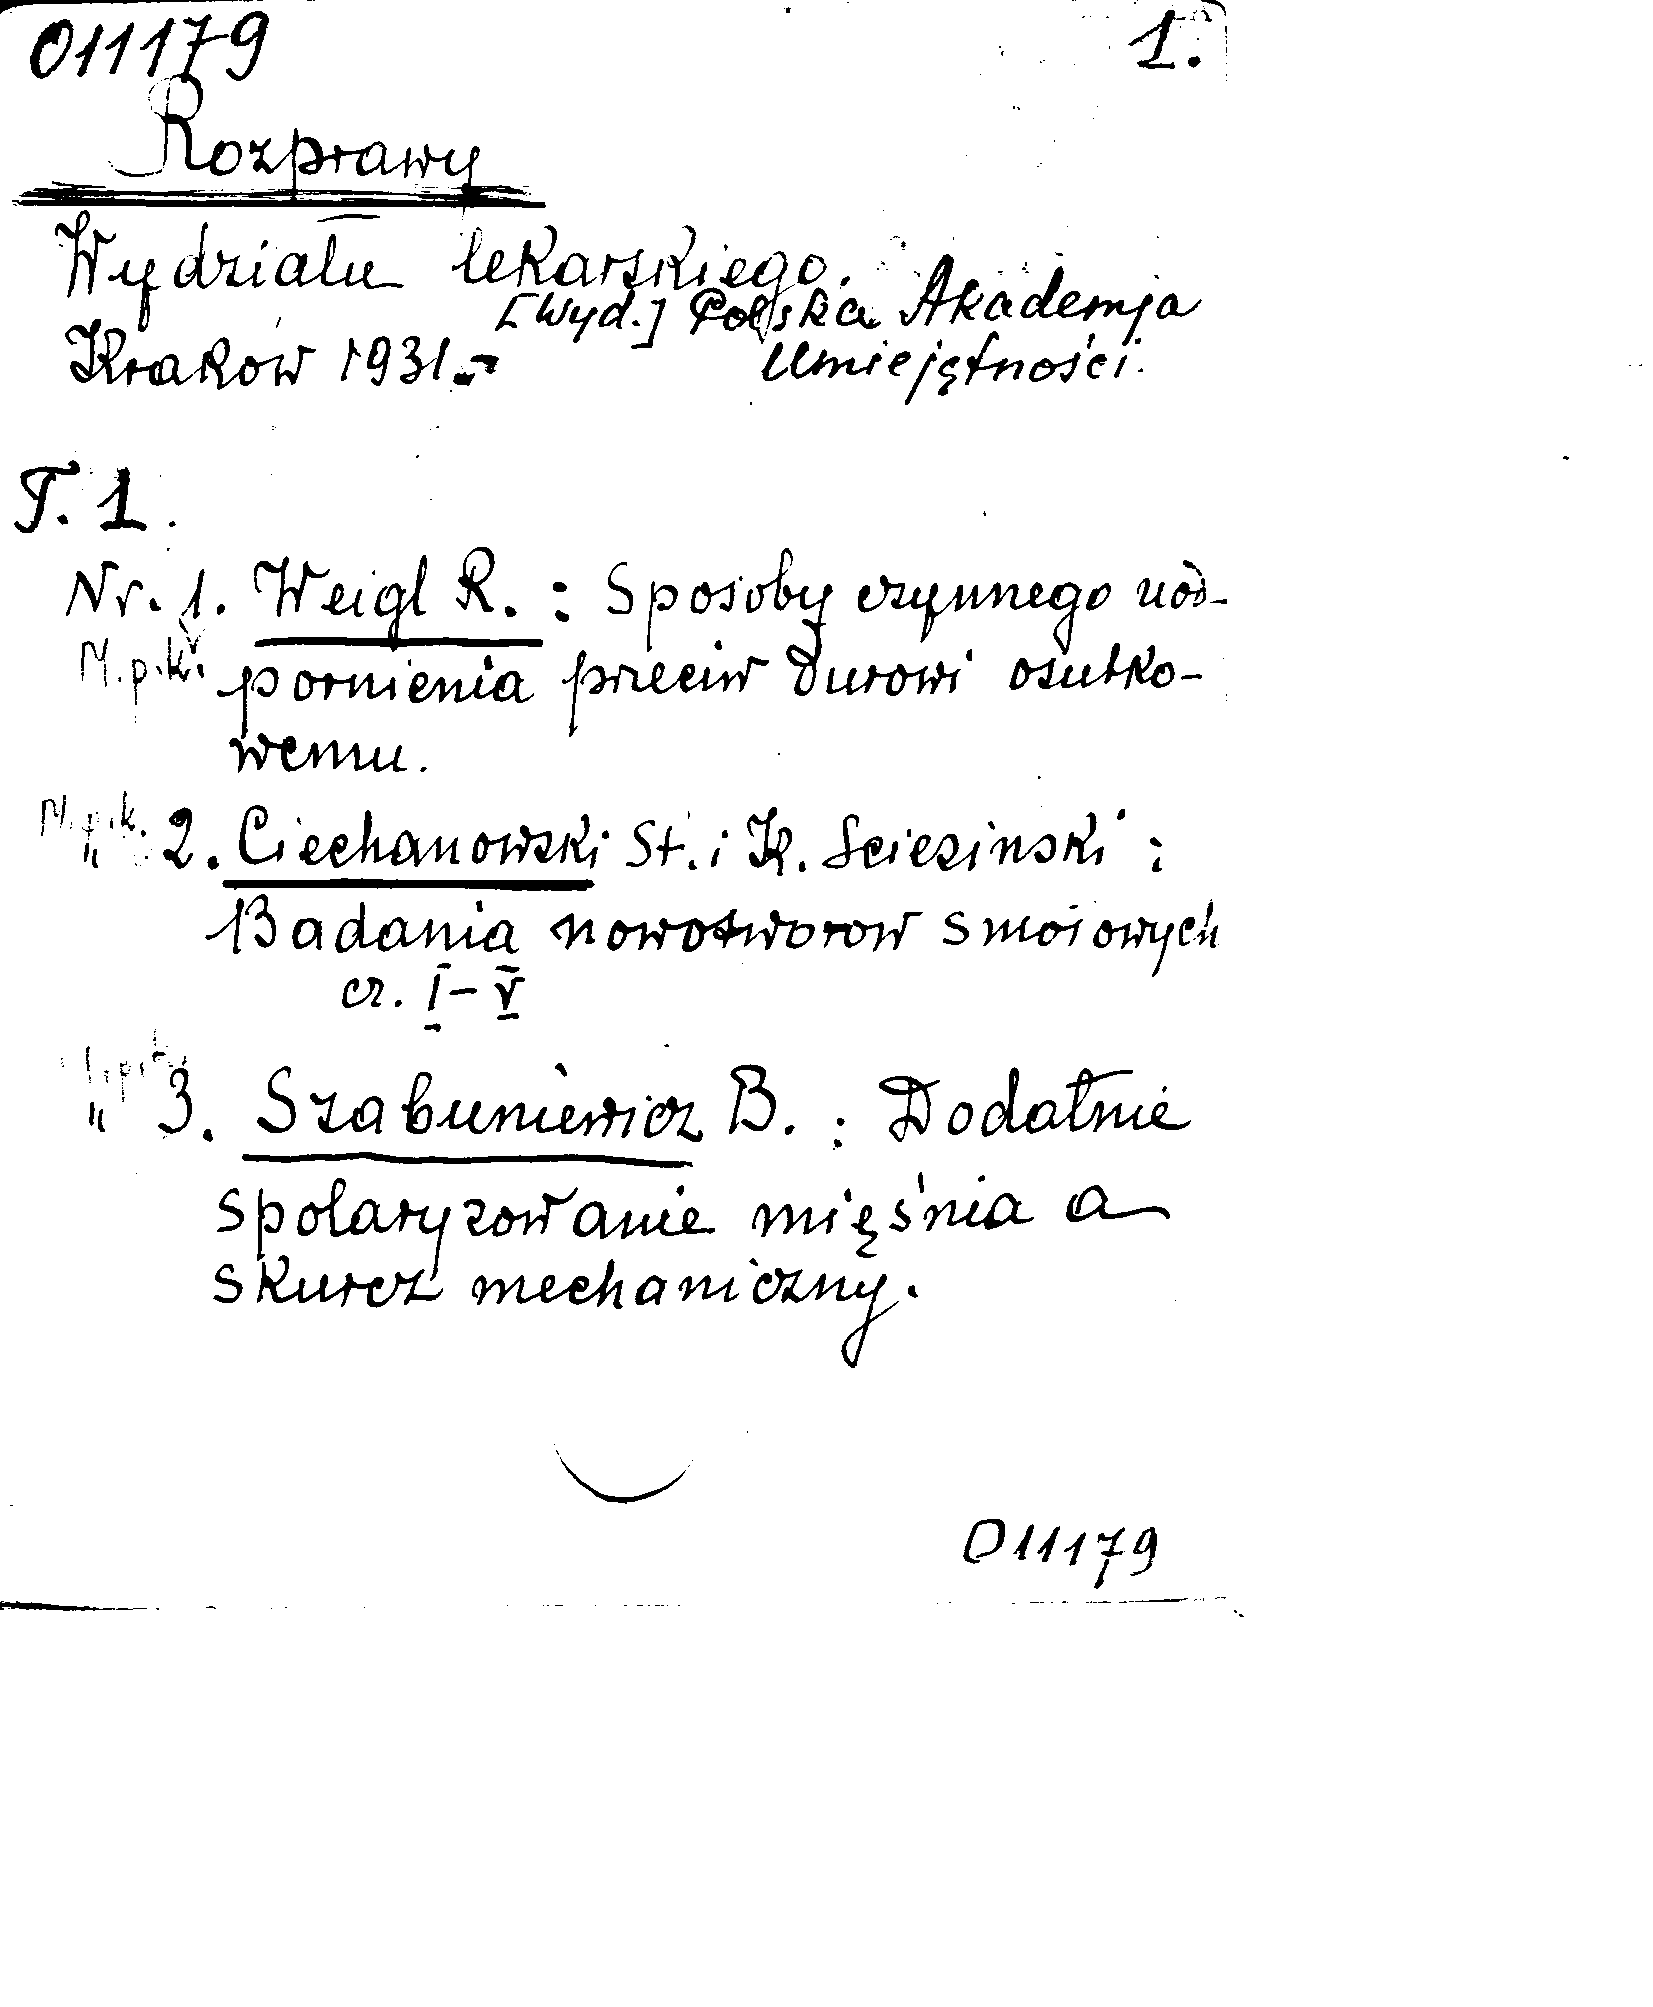 011179 1.
Rozprawy
Wydziału lekarskiego.
[Wyd.] Polska Akademja
Kraków 1931.- Umiejętności.
T. 1.
Nr. 1. Weigl R. : Sposoby czynnego uod-
M.p.k. pornienia przeciw durowi osutko-
wemu.
M.p.k.
" 2. Ciechanowski St. i K. Sciesinski :
Badania nowotworow smołowych
cz. I-V
M.p.k.
" 3. Szabuniewicz B. : Dodatnie
spolaryzowanie mięśnia a
skurcz mechaniczny.
011179